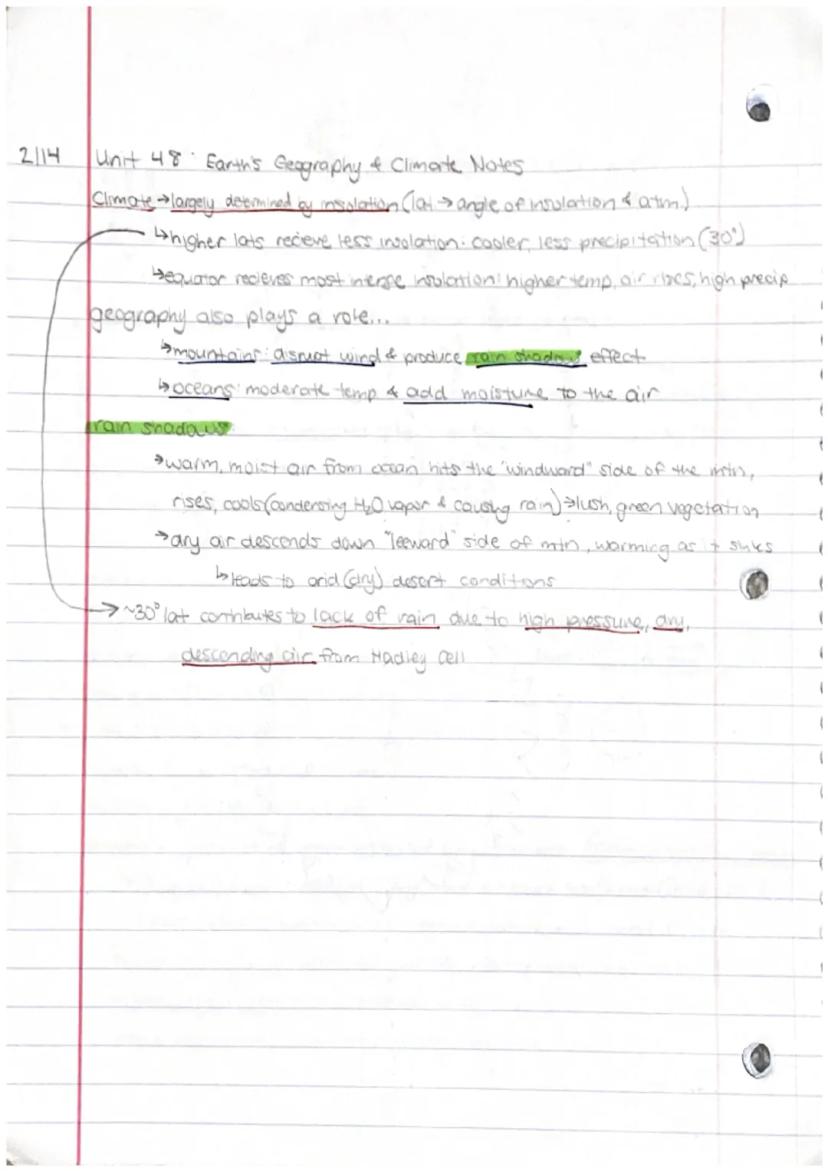 2/14 Unit 48: Earth's Geography & Climate Notes
Climate → largely determined by insolation (lat → angle of insolation & atm)
↳ higher lats recieve less insolation: cooler, less precipitation (30°)
↳ equator recieves most intense insolation: higher temp, air rises, high precip
geography also plays a role...
↳ mountains: disrupt wind & produce rain shadow effect
↳ oceans: moderate temp & add moisture to the air
rain shadows
→ warm, moist air from ocean hits the "windward" side of the mtn,
rises, cools (condensing H₂O vapor & causing rain) → lush, green vegetation
→ dry air descends down "leeward" side of mtn, warming as it sinks
↳ leads to arid (dry) desert conditions
→ ~30° lat contributes to lack of rain due to high pressure, dry,
descending air from Hadley Cell